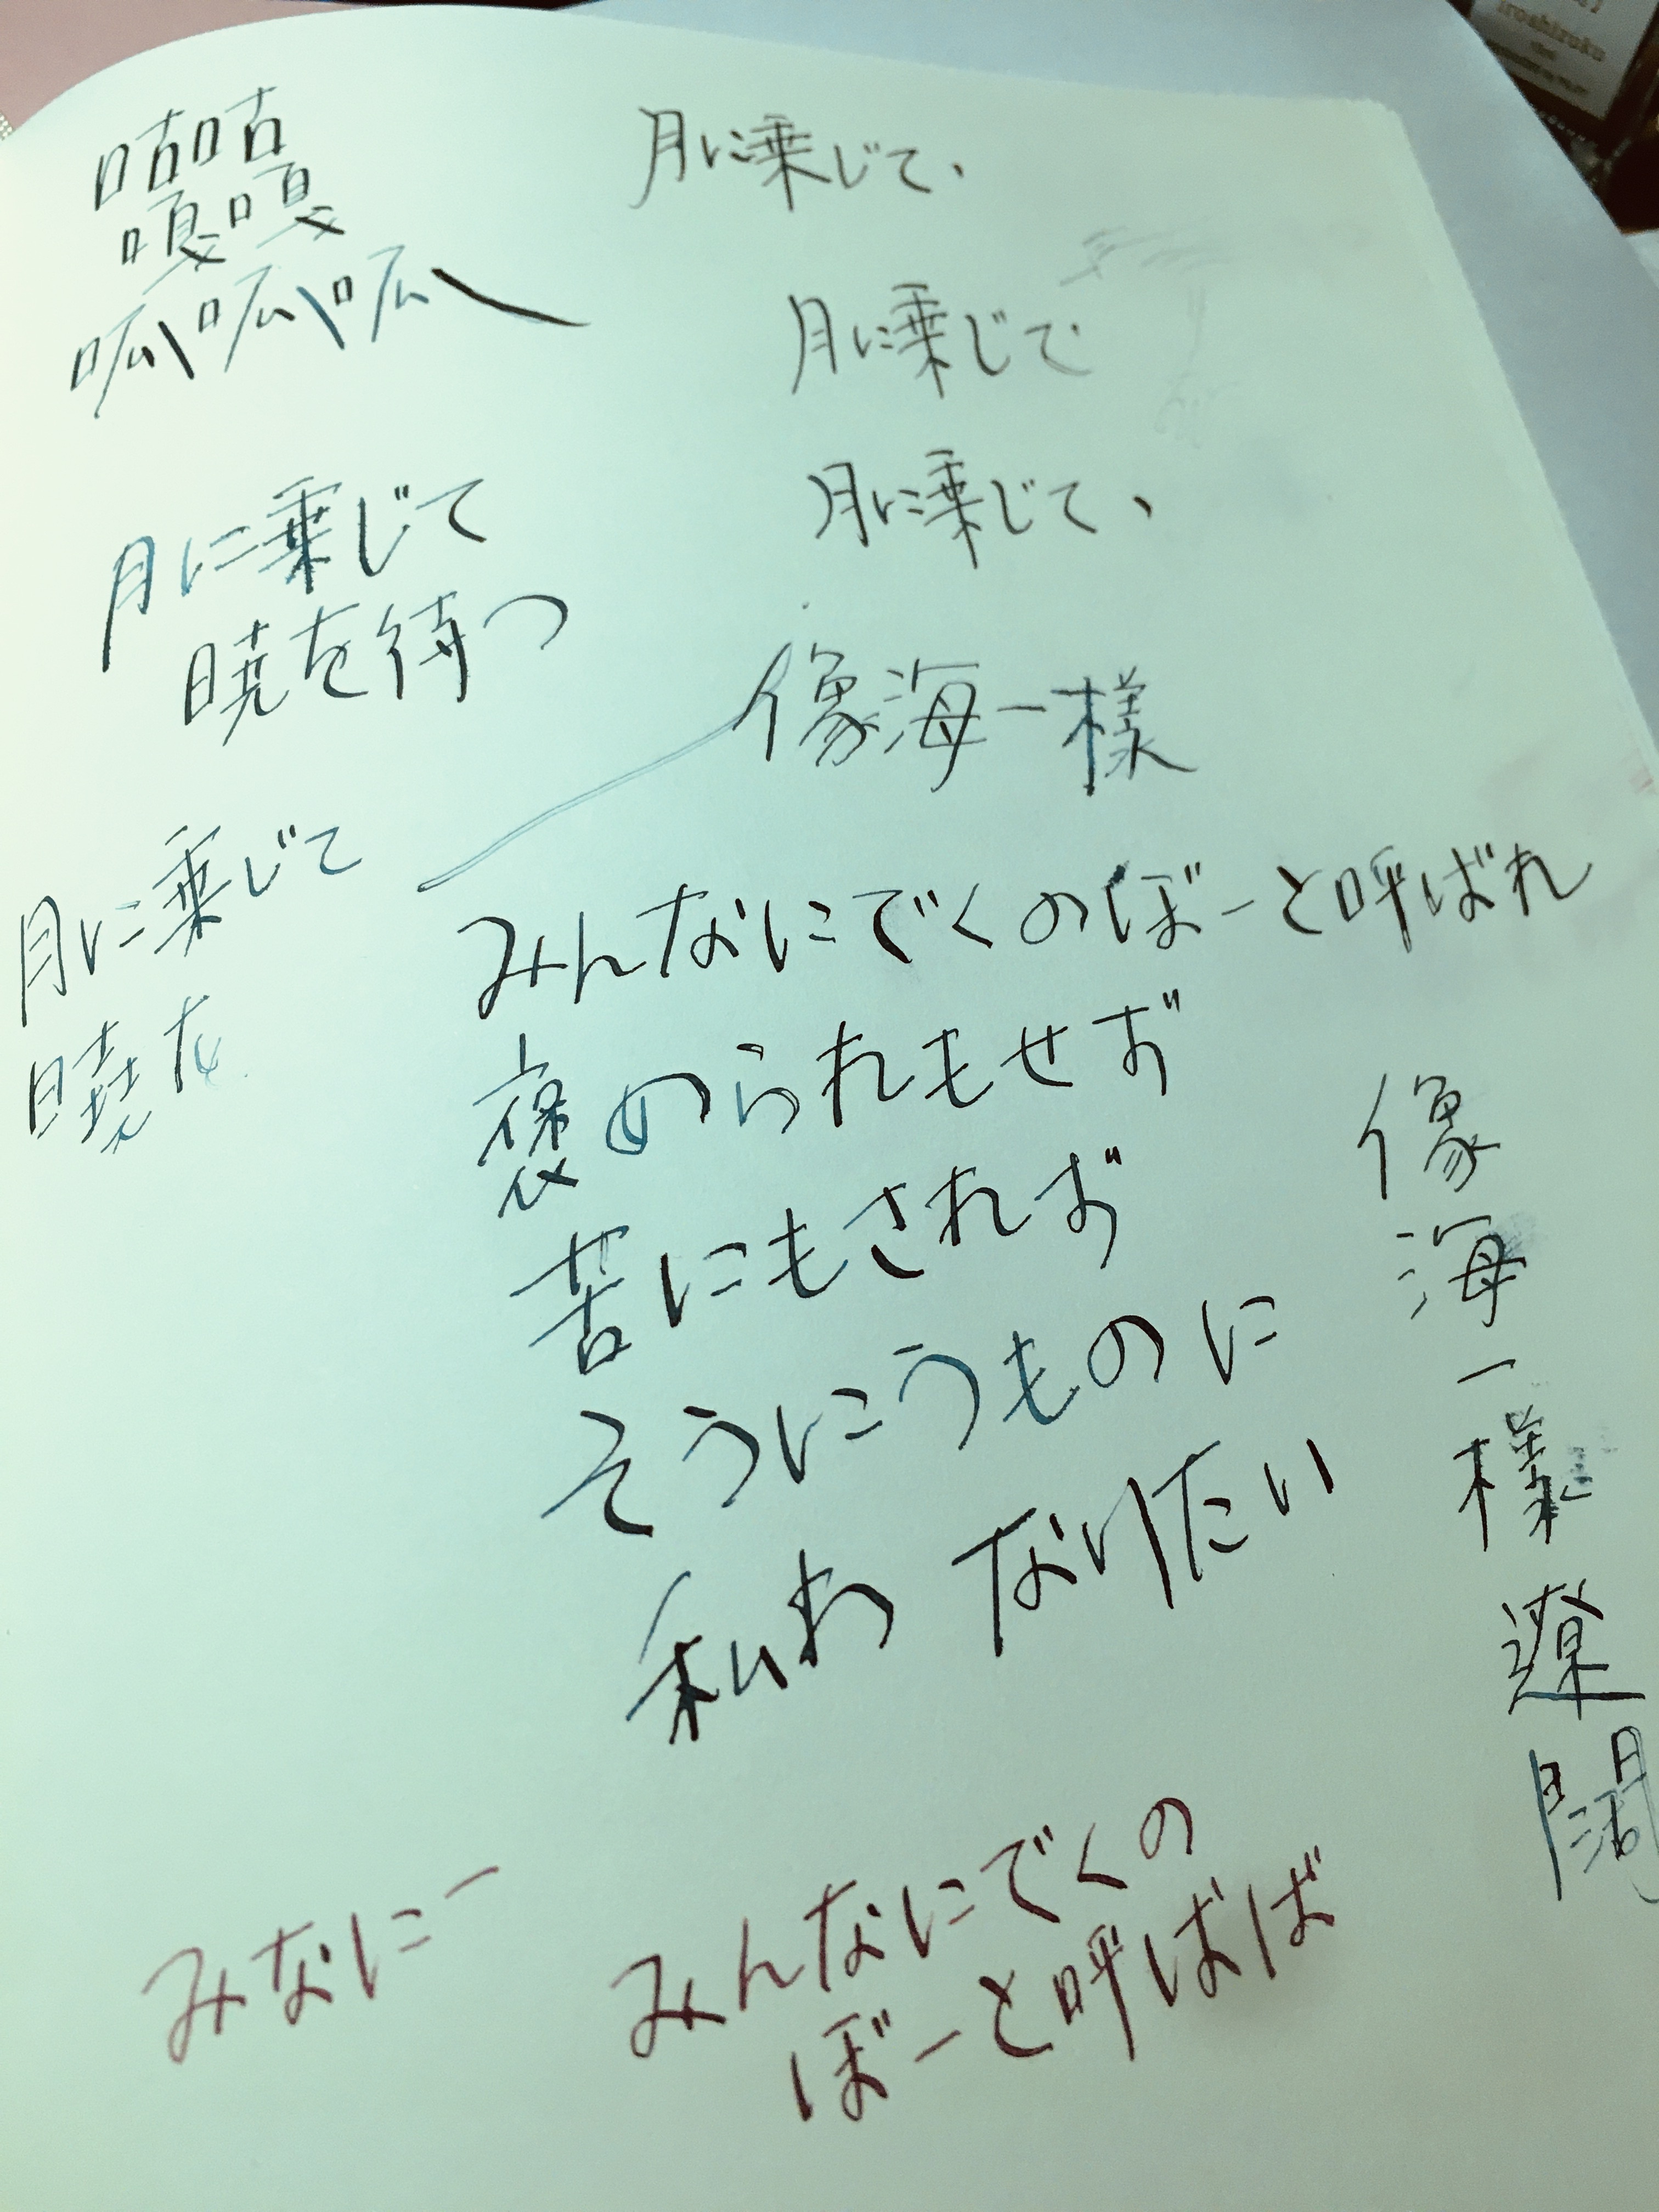 咕咕
嘎嘎
呱呱呱
月に乗じて、
月に乗じで
月に乗じて、
月に乗じて
暁を待つ
像海一様
月に乗じて
みんなにでくのぼーと呼ばれ
褒められもせず
苦にもされず
そうにうものに
私わ なりたい
像海一樣遼闊
みなにー
みんなにでくの
ぼーと呼ばば
iroshizuku